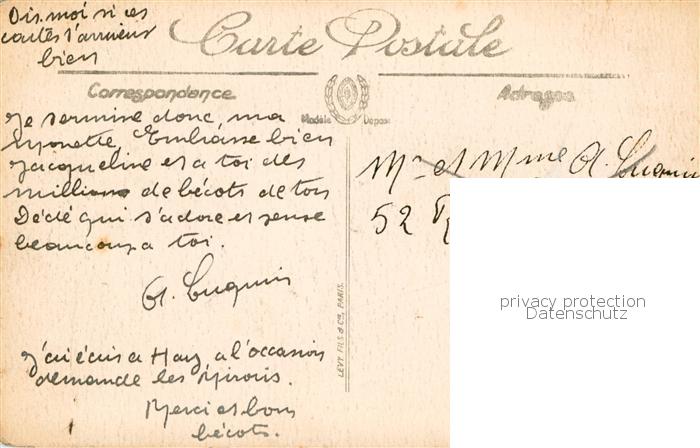 Dis moi si ces
cartes t'arrivent
bien
Carte Postale
Correspondance
Adresse
Modèle Déposé
Je termine donc, ma
Embrasse bien
Jacqueline et a toi des
millions de bécots de ton
Dédé qui t'adore et pense
beaucoup a toi.
A. Luquin
J'ai écris a Hay a l'occasion
demande les
Merci et bons
bécots.
LEVY FILS & Cie, PARIS.
Mr et Mme A. Luquin
52
privacy protection
Datenschutz